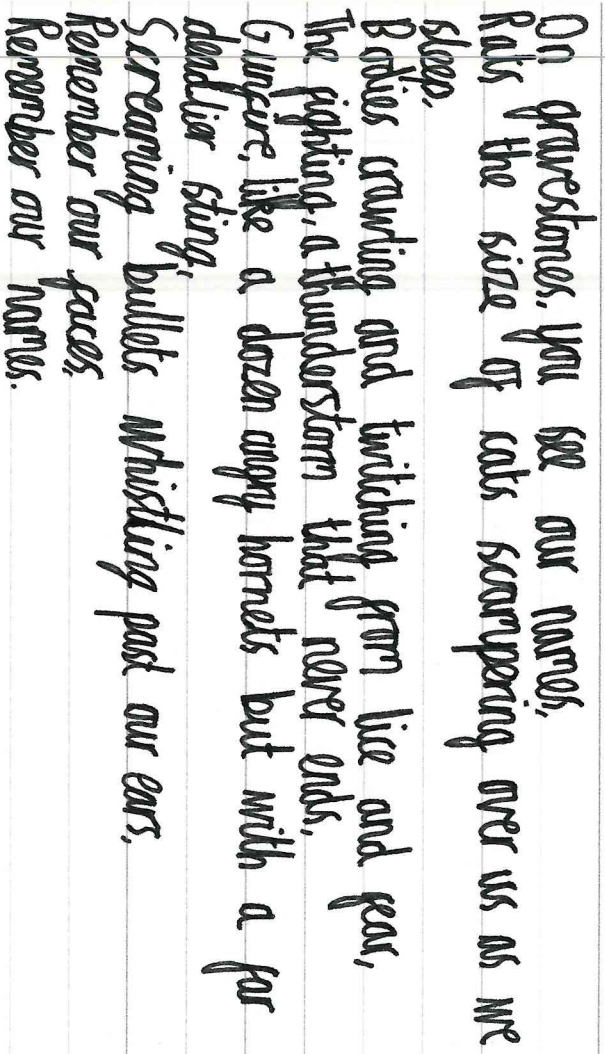 On gravestones, you see our names,
Rats the size of cats scampering over us as we
sleep,
Bodies crawling and twitching from lice and fear,
The fighting, a thunderstorm that never ends,
Gunfire, like a dozen angry hornets but with a far
deadlier sting,
Screaming bullets whistling past our ears,
Remember our faces,
Remember our names.